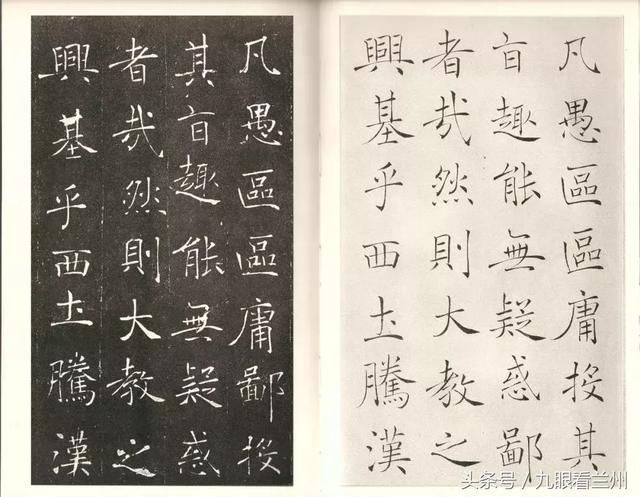 凡愚區區庸投其
旨趣能無疑惑鄙
者哉然則大教之
興基乎西土騰漢
凡愚區區庸鄙投
其旨趣能無疑惑
者哉然則大教之
興基乎西土騰漢
头条号 / 九眼看兰州